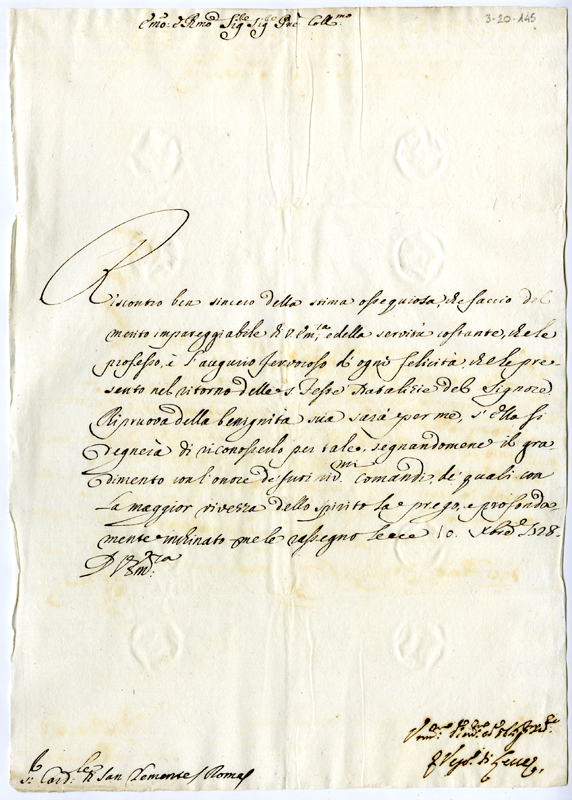 3-20-145
Em.o e R.mo Sig.re Sig.re P.ne Coll.mo
Riscontro ben sincero della stima ossequiosa, che faccio del
merito impareggiabile di V. Em.za e della servitù costante, che le
professo, è l'augurio fervoroso di ogni felicità, che le pre-
sento nel ritorno delle S. Feste Natalizie del Signore.
Ripruova della benignità sua sarà per me, s'Ella si
degnerà di riconoscerlo per tale, segnandomene il gra-
dimento con l'onore de suoi riv.mi comandi, de quali con
la maggior vivezza dello spirito la prego, e profonda
mente inchinato me le rassegno Lecce 10. Xbre 1728.
D. V. Em.za
Vesc. di Lecce
S. Card.le di San Clemente / Roma /